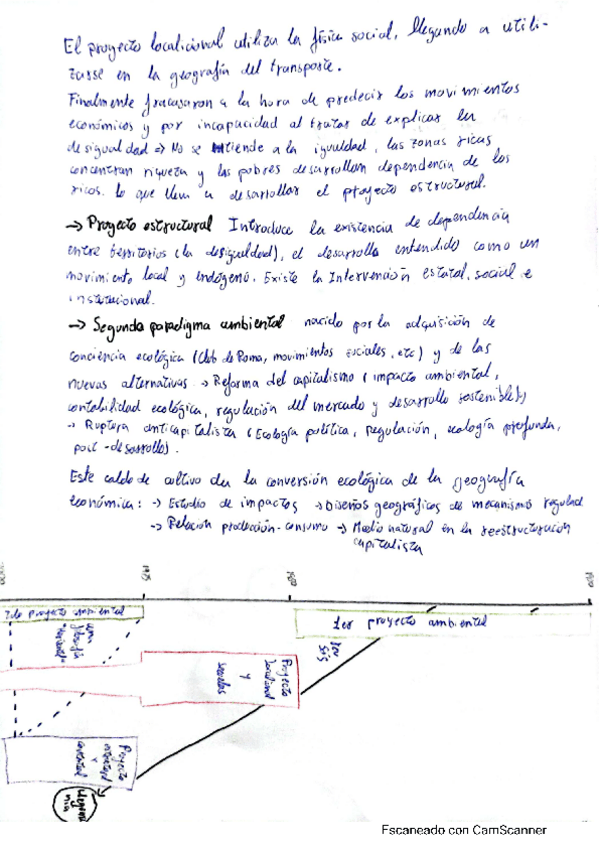 El proyecto localicional utiliza la física social, llegando a utili-
zarse en la geografía del transporte.
Finalmente fracasaron a la hora de predecir los movimientos
económicos y por incapacidad al tratar de explicar la
desigualdad => No se tiende a la igualdad, las zonas ricas
concentran riqueza y las pobres desarrollan dependencia de los
ricos. Lo que lleva a desarrollar el proyecto estructural.
-> Proyecto estructural Introduce la existencia de dependencia
entre territorios (la desigualdad), el desarrollo entendido como un
movimiento local y endógeno. Existe la Intervención estatal, social e
institucional.
-> Segundo paradigma ambiental nacido por la adquisición de
conciencia ecológica (Club de Roma, movimientos sociales, etc) y de las
nuevas alternativas -> Reforma del capitalismo (impacto ambiental,
contabilidad ecológica, regulación del mercado y desarrollo sostenible)
-> Ruptura anticapitalista (Ecología política, Regulación, ecología profunda,
post-desarrollo).
Este caldo de cultivo da la conversión ecológica de la geografía
económica: -> Estudio de impactos -> Diseños geográficos de mecanismos
-> Relación producción-consumo -> Medio natural en la reestructuración
capitalista
2do proyecto ambiental
1er proyecto ambiental
Proyecto
y
Proyecto
estructural
y
Escaneado con CamScanner